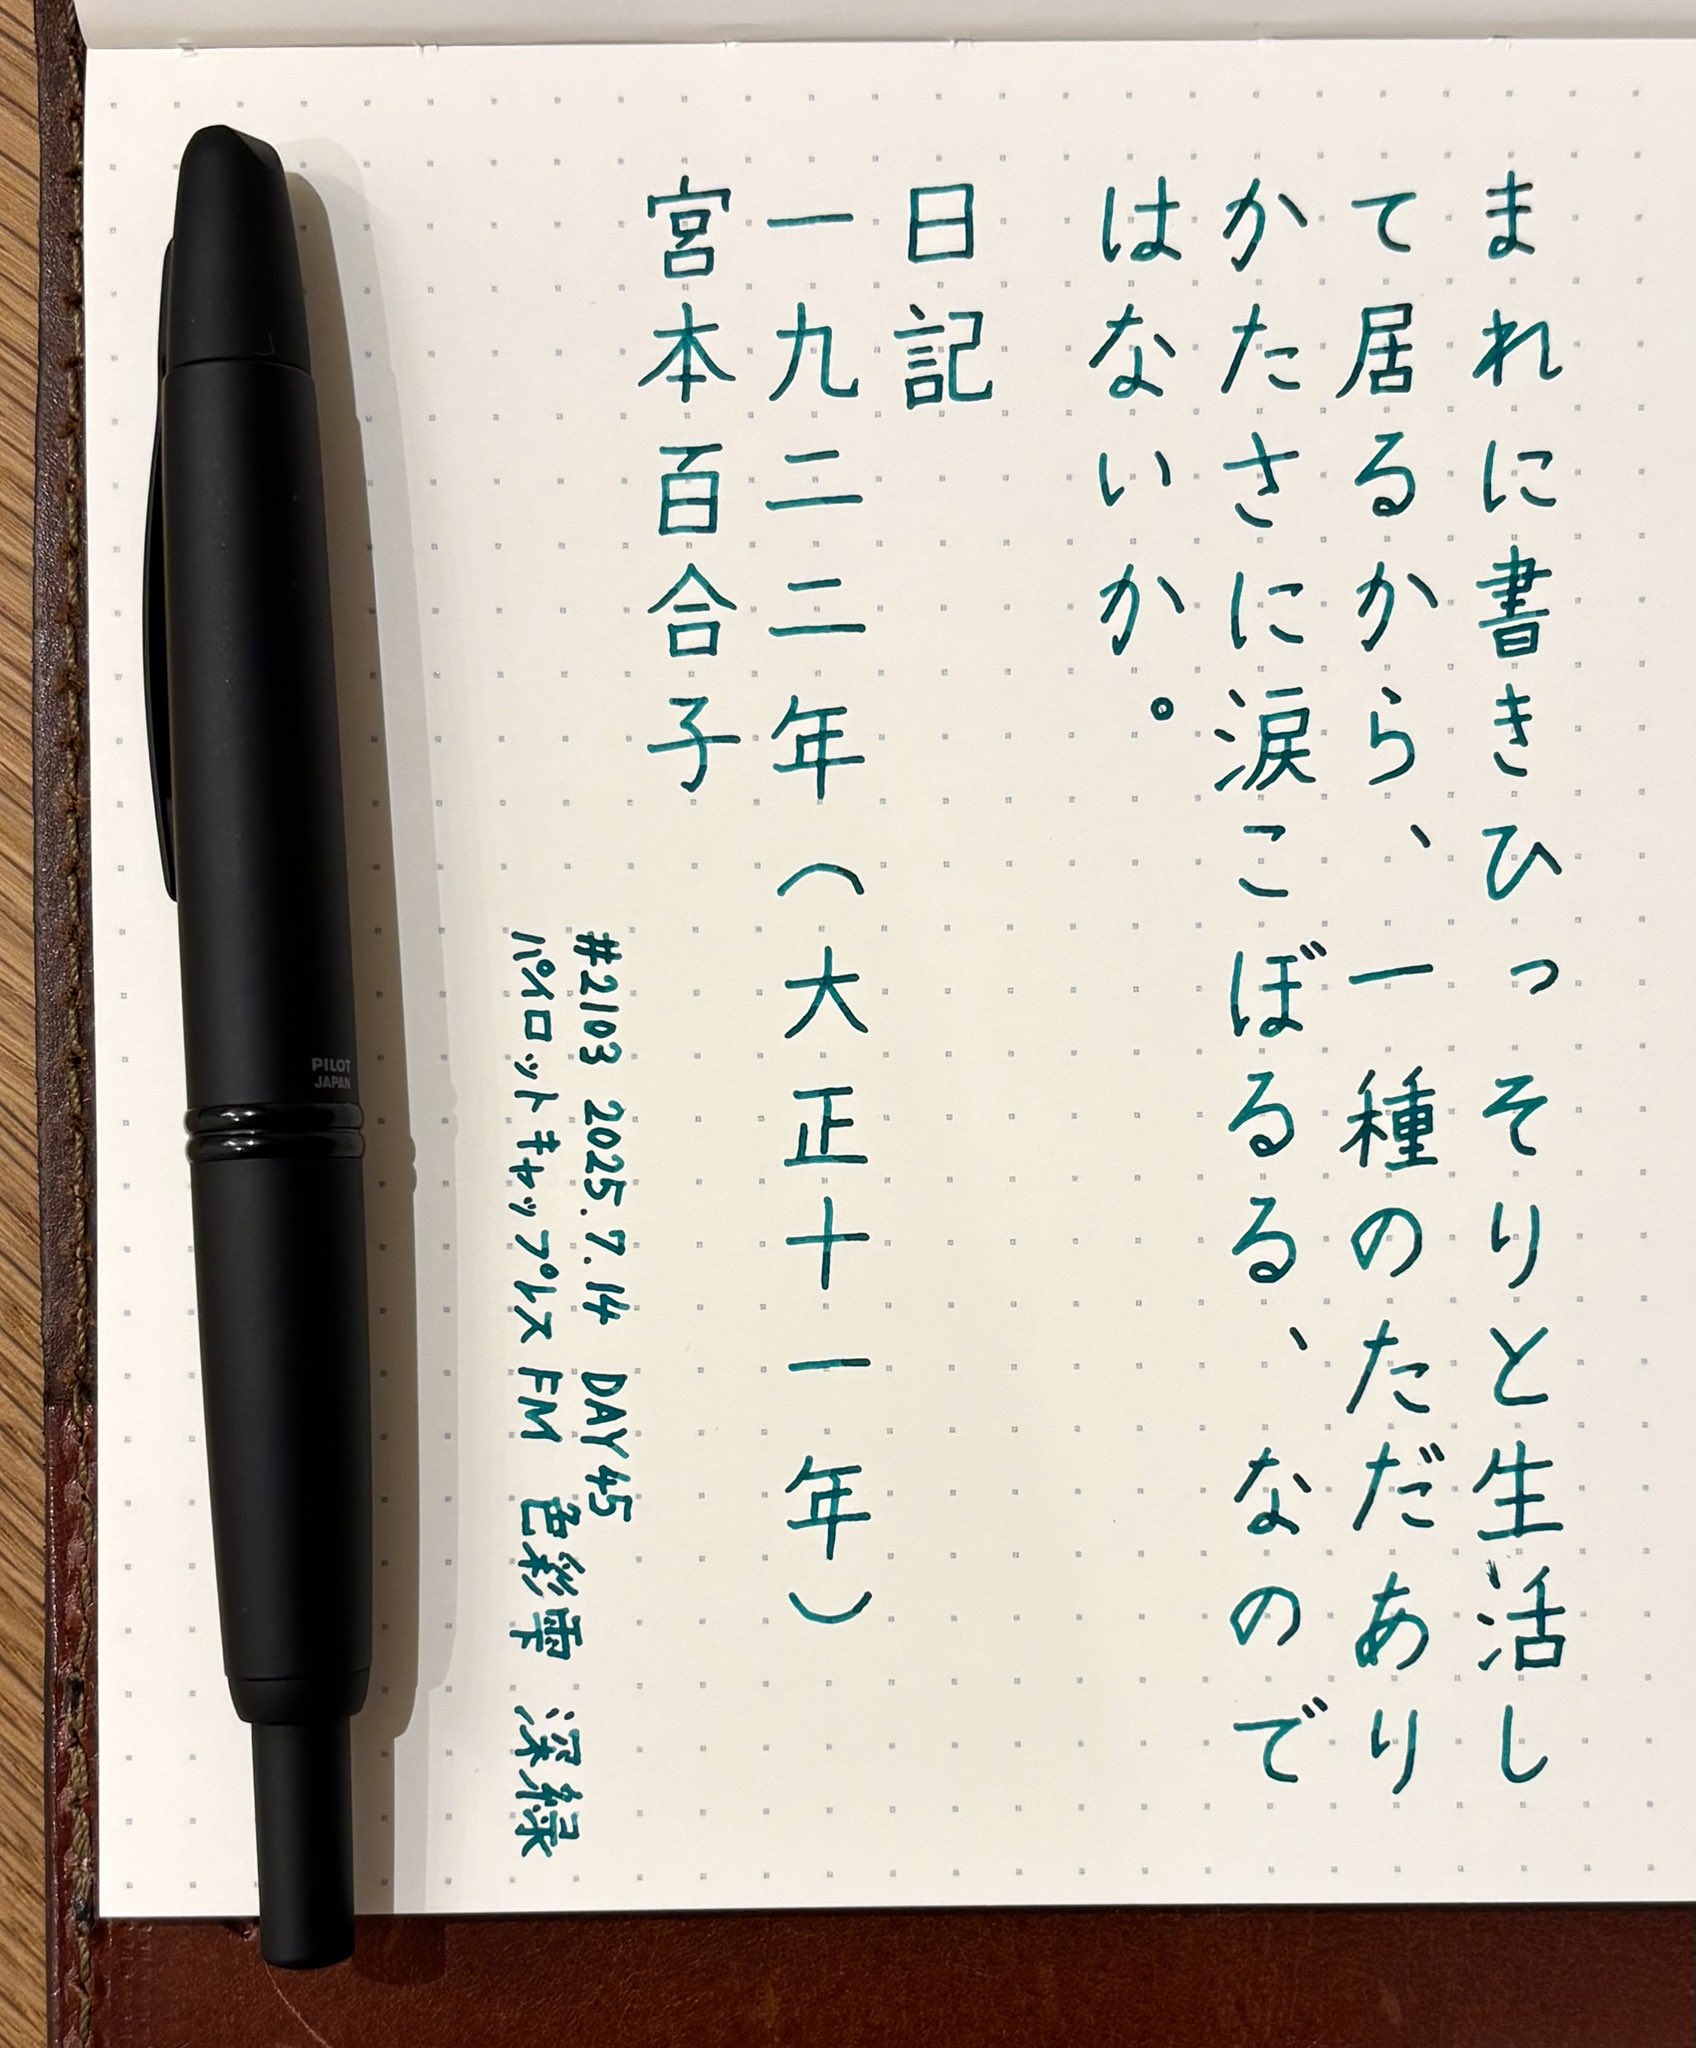 まれに書きひっそりと生活し
て居るから、一種のただあり
かたさに涙こぼるる、なので
はないか。
日記
一九二二年（大正十一年）
宮本百合子
#2103 2025.7.14 DAY45
パイロットキャップレス FM 色彩雫 深緑
PILOT
JAPAN